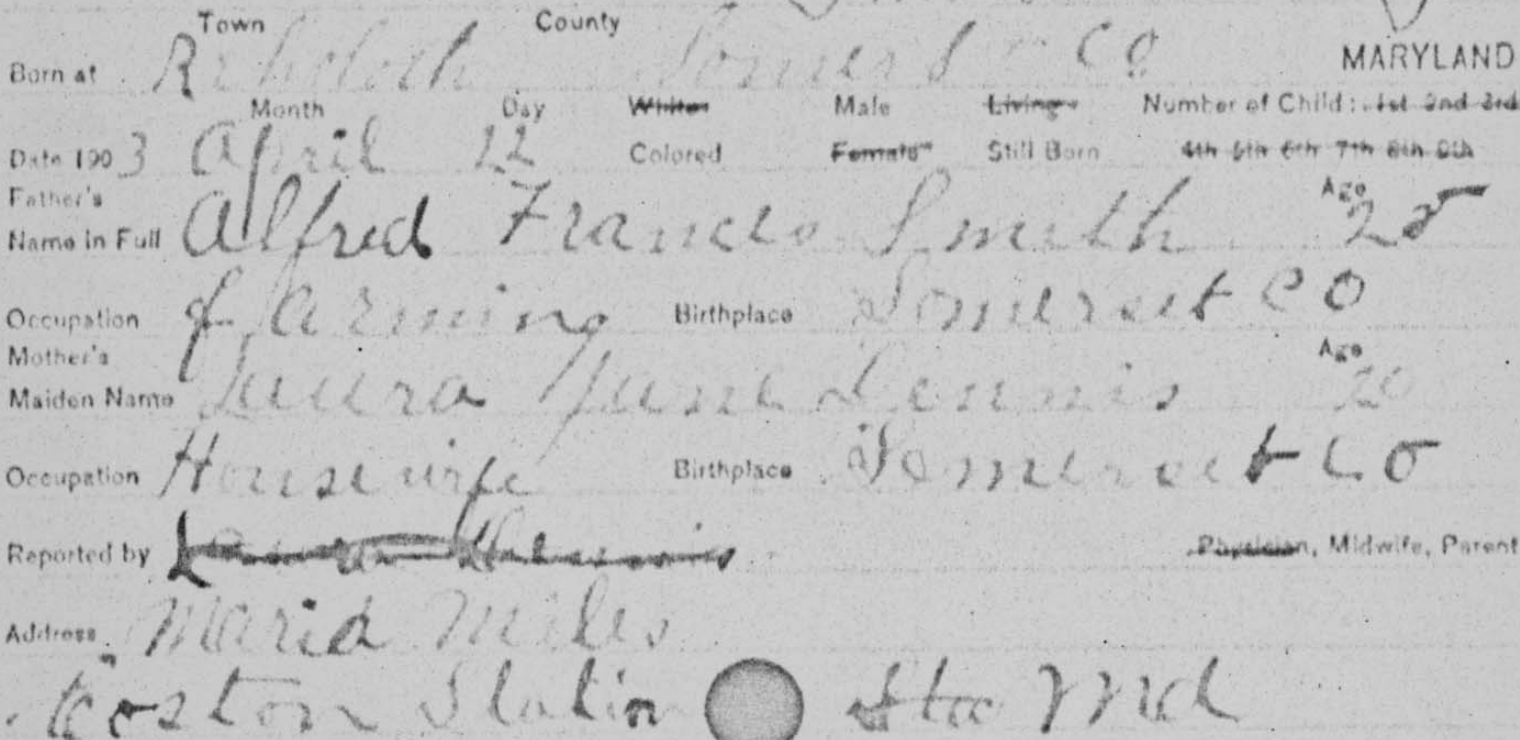 Town County
Born at Rehoboth Somerset Co MARYLAND
Month Day White Male Living Number of Child: 1st 2nd 3rd
Date 1903 April 22 Colored Female Still Born 4th 5th 6th 7th 8th 9th
Father's Age
Name in Full Alfred Francis Smith 25
Occupation farming Birthplace Somerset Co
Mother's Age
Maiden Name Laura Jane Dennis 20
Occupation Housewife Birthplace Somerset Co
Reported by Laura Dennis Physician, Midwife, Parent
Address Maria Miles
Coston Station Md